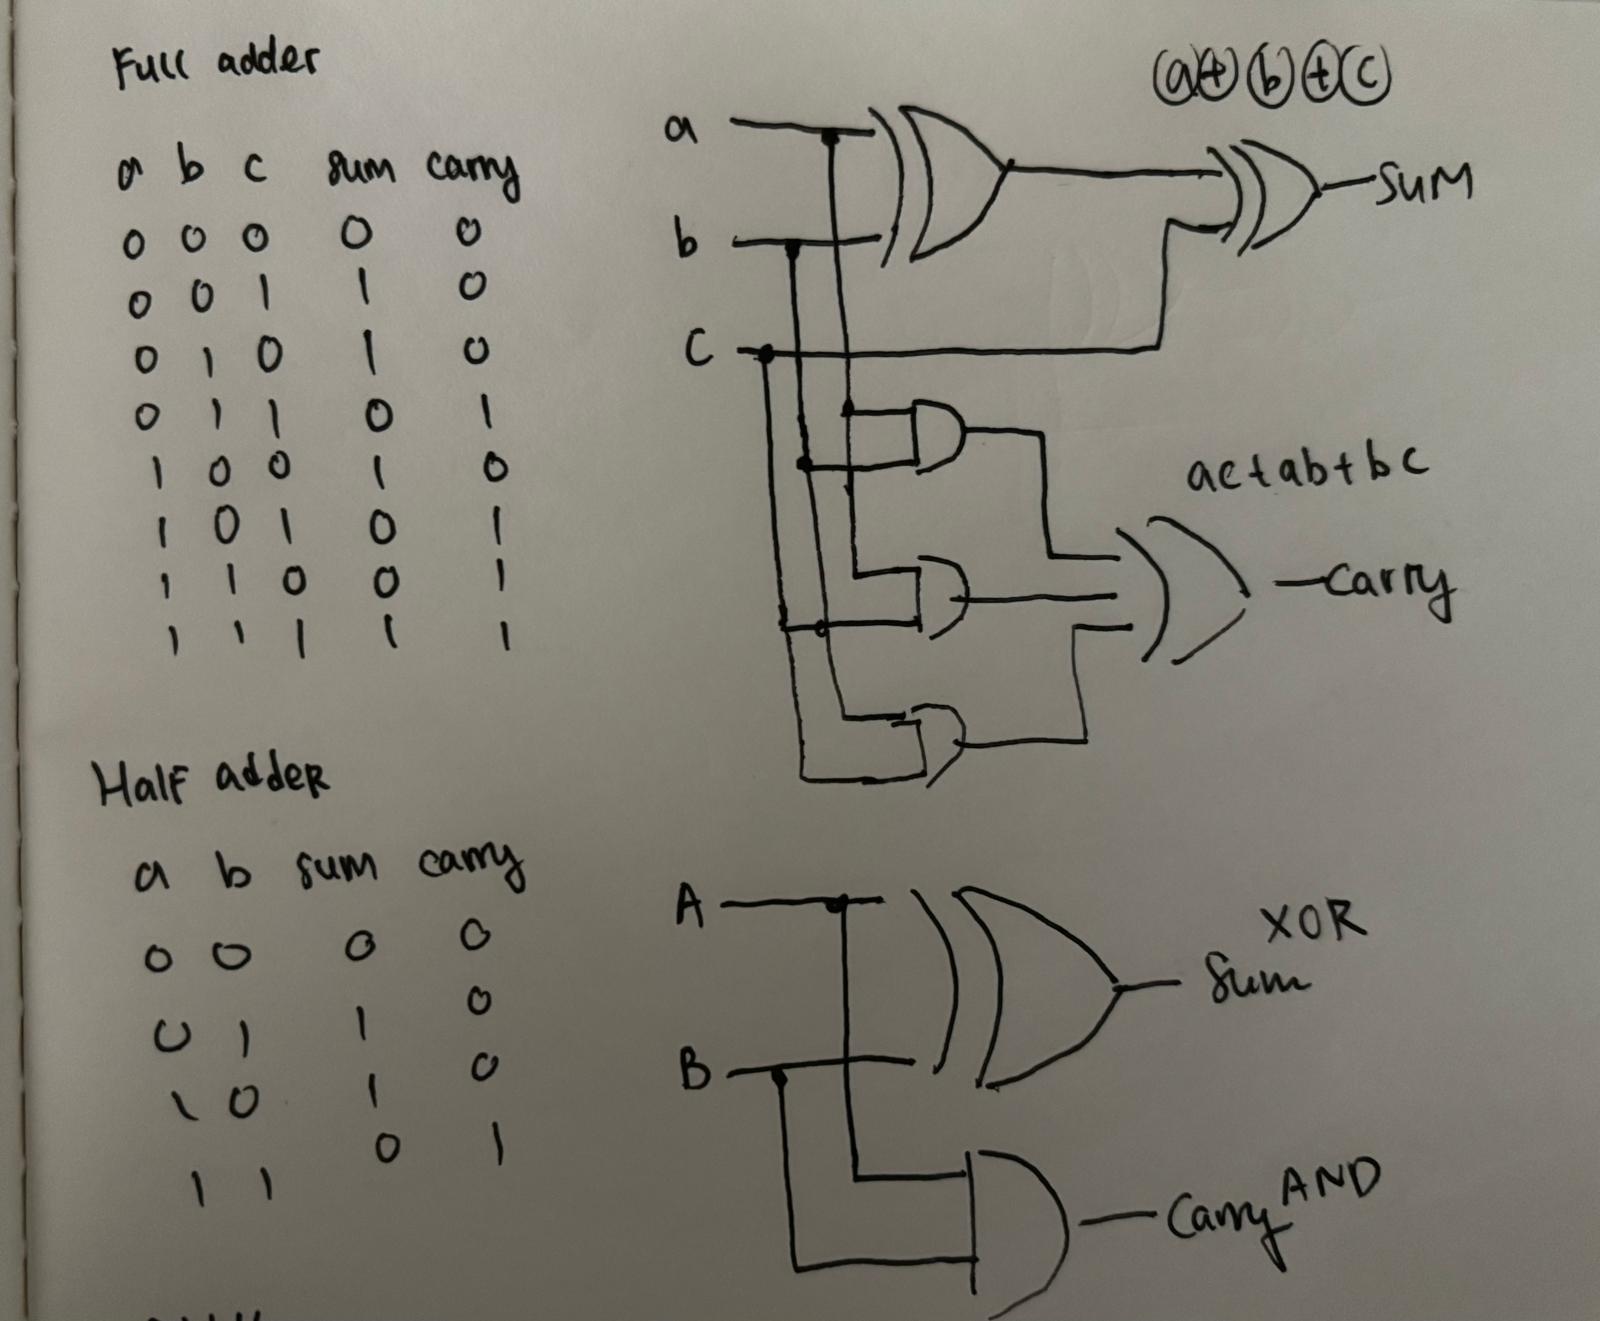 Full adder
a b c sum carry
0 0 0 0 0
0 0 1 1 0
0 1 0 1 0
0 1 1 0 1
1 0 0 1 0
1 0 1 0 1
1 1 0 0 1
1 1 1 1 1
a⊕b⊕c
a
b
C
SUM
ac+ab+bc
Carry
Half adder
a b sum carry
0 0 0 0
0 1 1 0
1 0 1 0
1 1 0 1
A
B
XOR
Sum
Carry AND